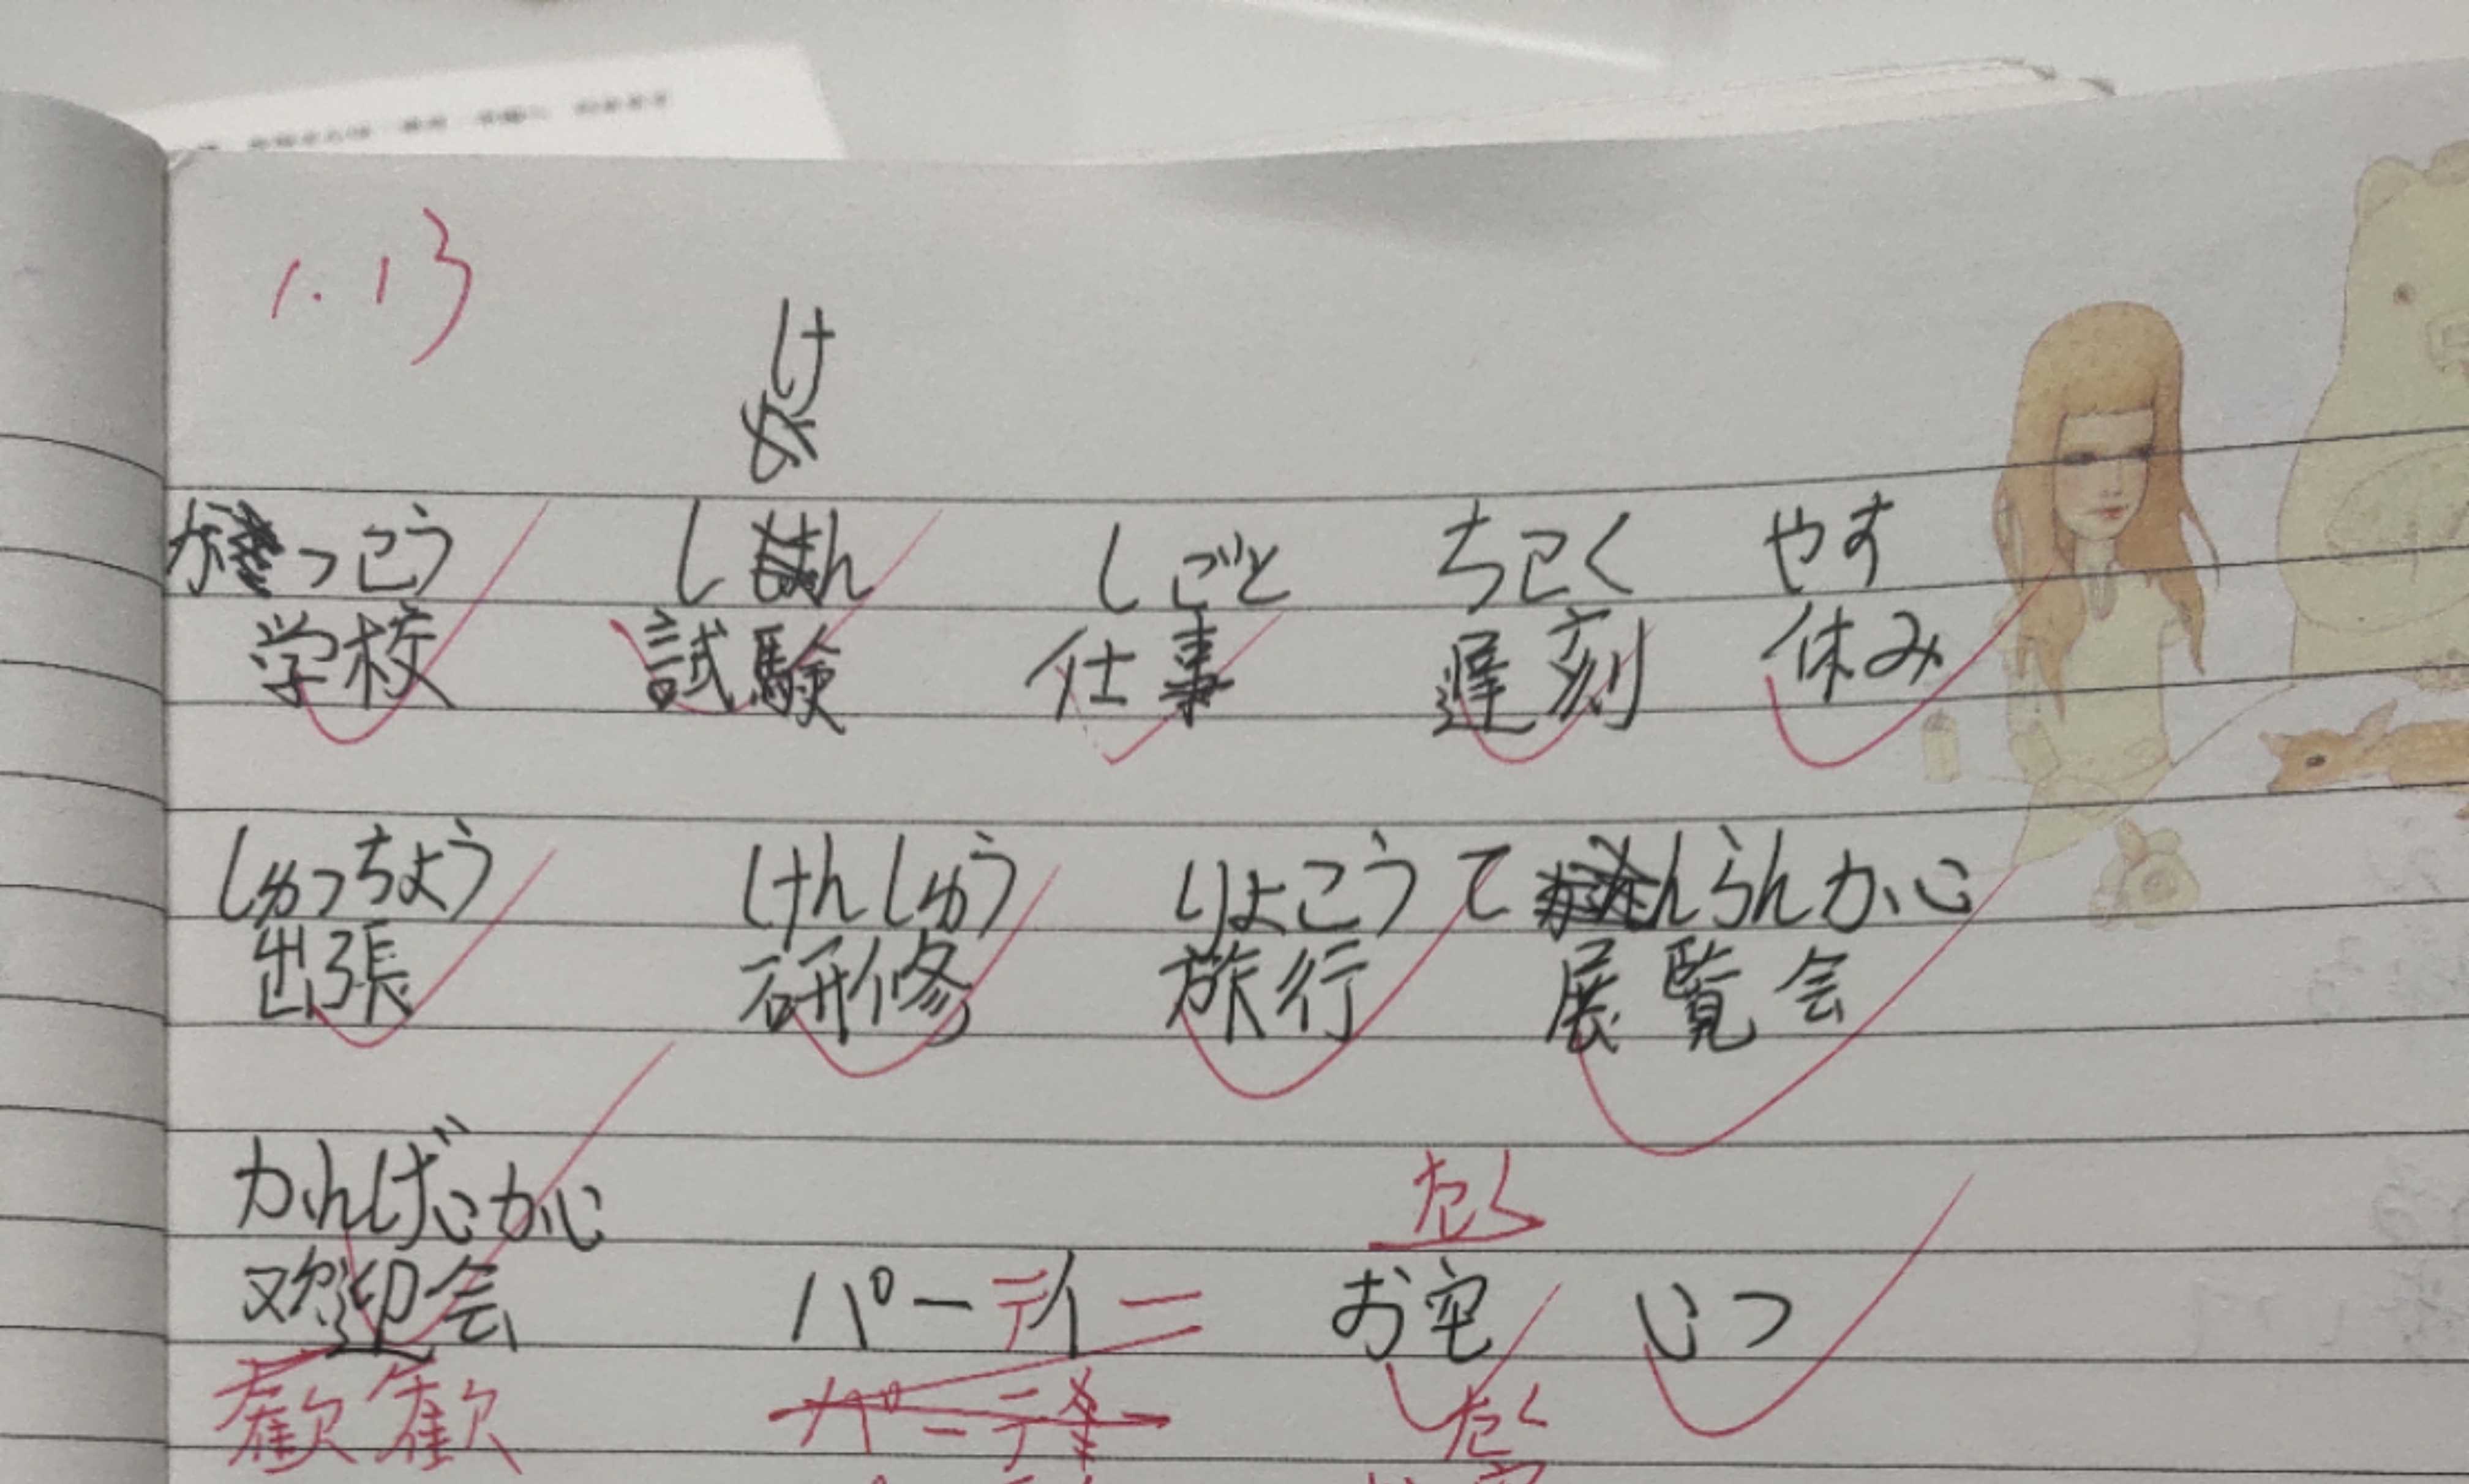 1.13
け
がっこう しけん しごと ちこく やす
学校 試験 仕事 遅刻 休み
しゅっちょう けんしゅう りょこう てんらんかい
出張 研修 旅行 展覧会
かんげいかい たく
欢迎会 パーティー お宅 いつ
歓 歓 たく